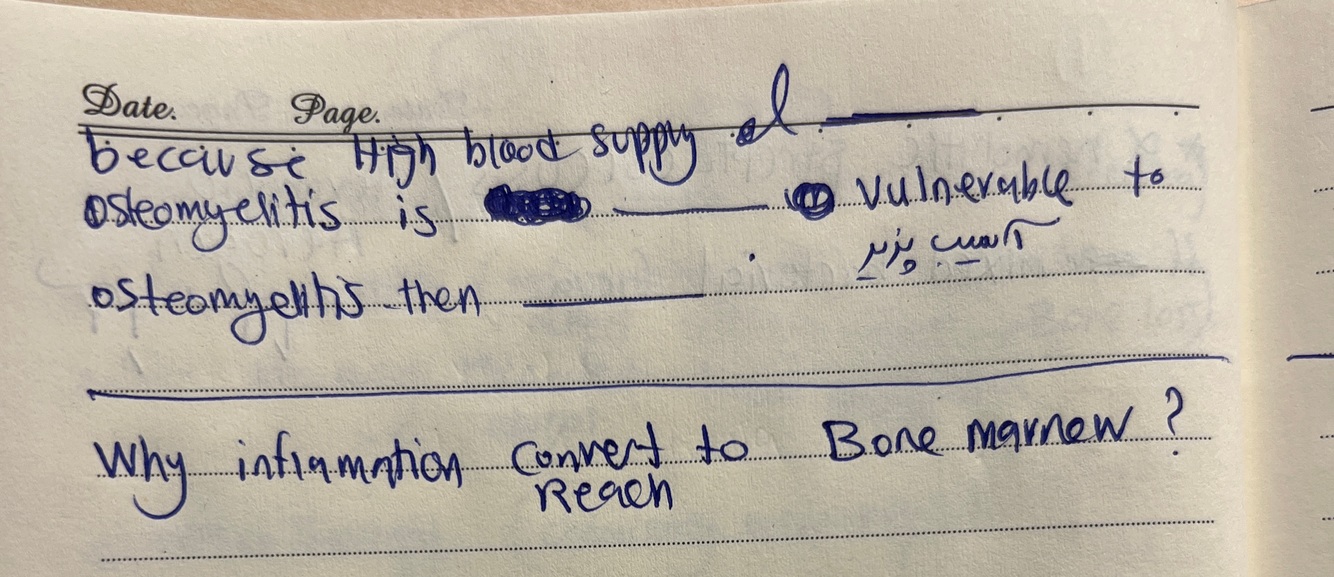 Date. Page.
because High blood supply of
osteomyelitis is vulnerable to
آسیب پزیر
osteomyelitis then
Why inflamation convert to Bone marrew ?
Reach